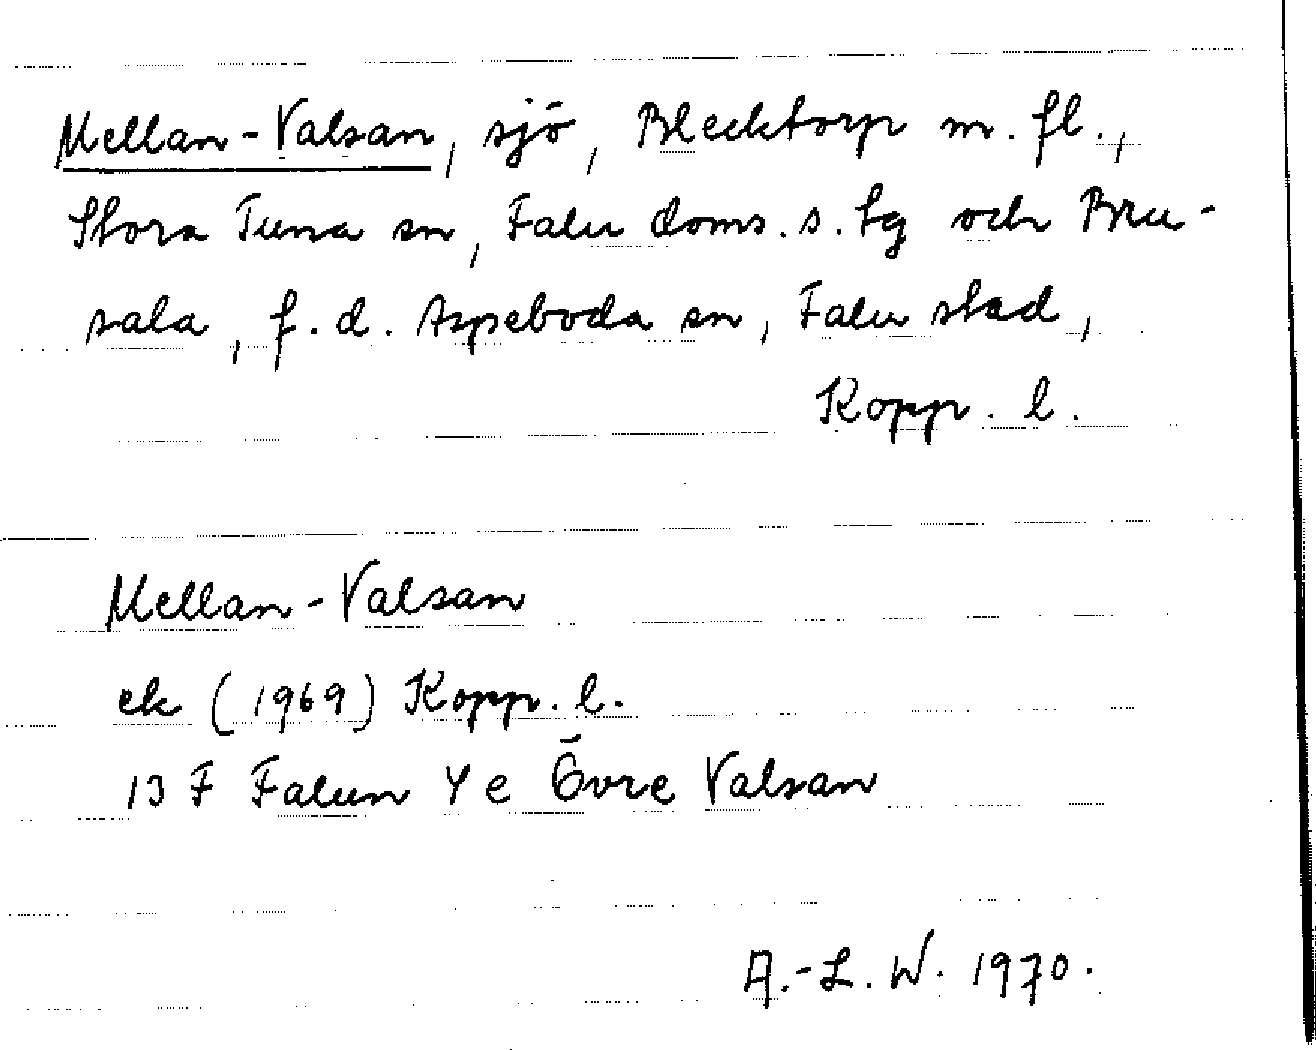 Mellan-Valsan, sjö, Blecktorp m. fl.,
Stora Tuna sn, Falu doms. s. tg och Bru-
sala, f. d. Aspeboda sn, Falu stad,
Kopp. l.
Mellan-Valsan
ek (1969) Kopp. l.
13 F Falun 4 e Övre Valsan
A.-L. W. 1970.